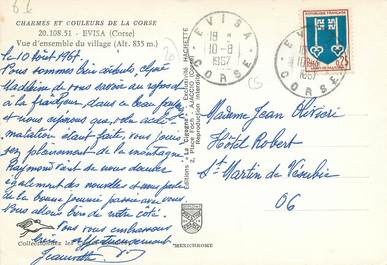 CHARMES ET COULEURS DE LA CORSE
20.108.51 - EVISA (Corse)
Vue d'ensemble du village (Alt. 835 m.)
le 10 Août 1967.
Nous sommes bien arrivés, Cpré
Madeleine de nous avoir au repos et
à la fraîcheur, dans ce beau palais
et nous espérons que, l'acclimatation étant faite, vous jouissez pleinement de la montagne.
Raymond vient de nous donner
également des nouvelles et nous parle
de la bonne journée passée avec vous.
Nous allons bien de notre côté.
Nous vous embrassons
affectueusement
Jeannette
Collectionnez les
MEXICHROME
Editions "La Cigogne" - Exclusivité HACHETTE
2, Place Foch - AJACCIO (Corse)
Reproduction interdite
EVISA
18 H
10-8
1967
CORSE
EVISA
18 H
10-8
1967
CORSE
REPUBLIQUE FRANÇAISE
0,25
Madame Jean Olivieri
Hôtel Robert
St Martin de Vésubie
06